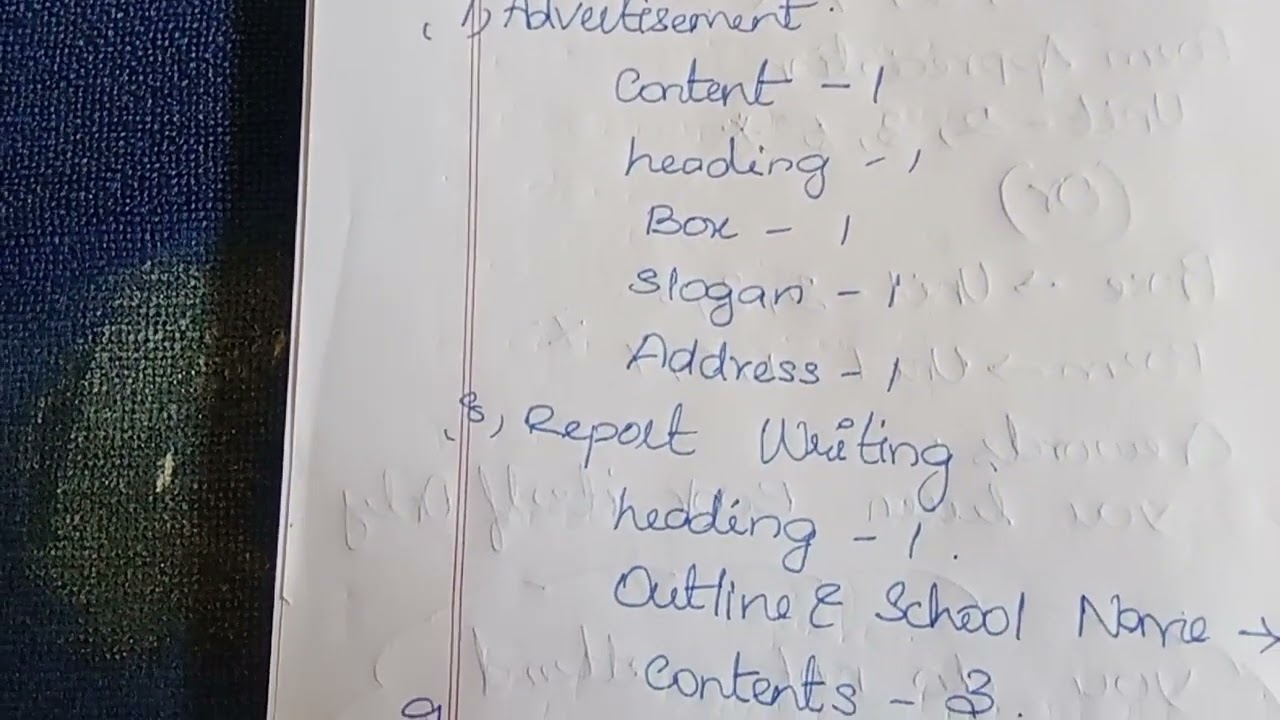 1) Advertisement.
Content - 1
heading - 1
Box - 1
Slogan - 1
Address - 1
8) Report Writing.
heading - 1.
Outline & School Name →
Contents - 3.
9